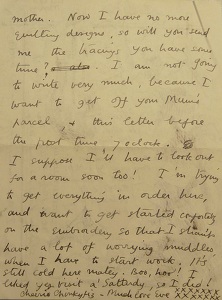 mother. Now I have no more
quilting designs, so will you send
me the tracings you have some
time? I am not going
to write very much, because I
want to get off your Mum's
parcel & this letter before
the post time 7 oclock.
I suppose I'll have to look out
for a room soon too! I'm trying
to get everything in order here,
and want to get started
on the embroidery so that I
have a lot of worrying muddles
when I have to start work, It's
still cold here matey. Boo, hoo! I
liked yesterday, so I did!
Cheerio - Much love Eve XXXXXX
XXXXXXX